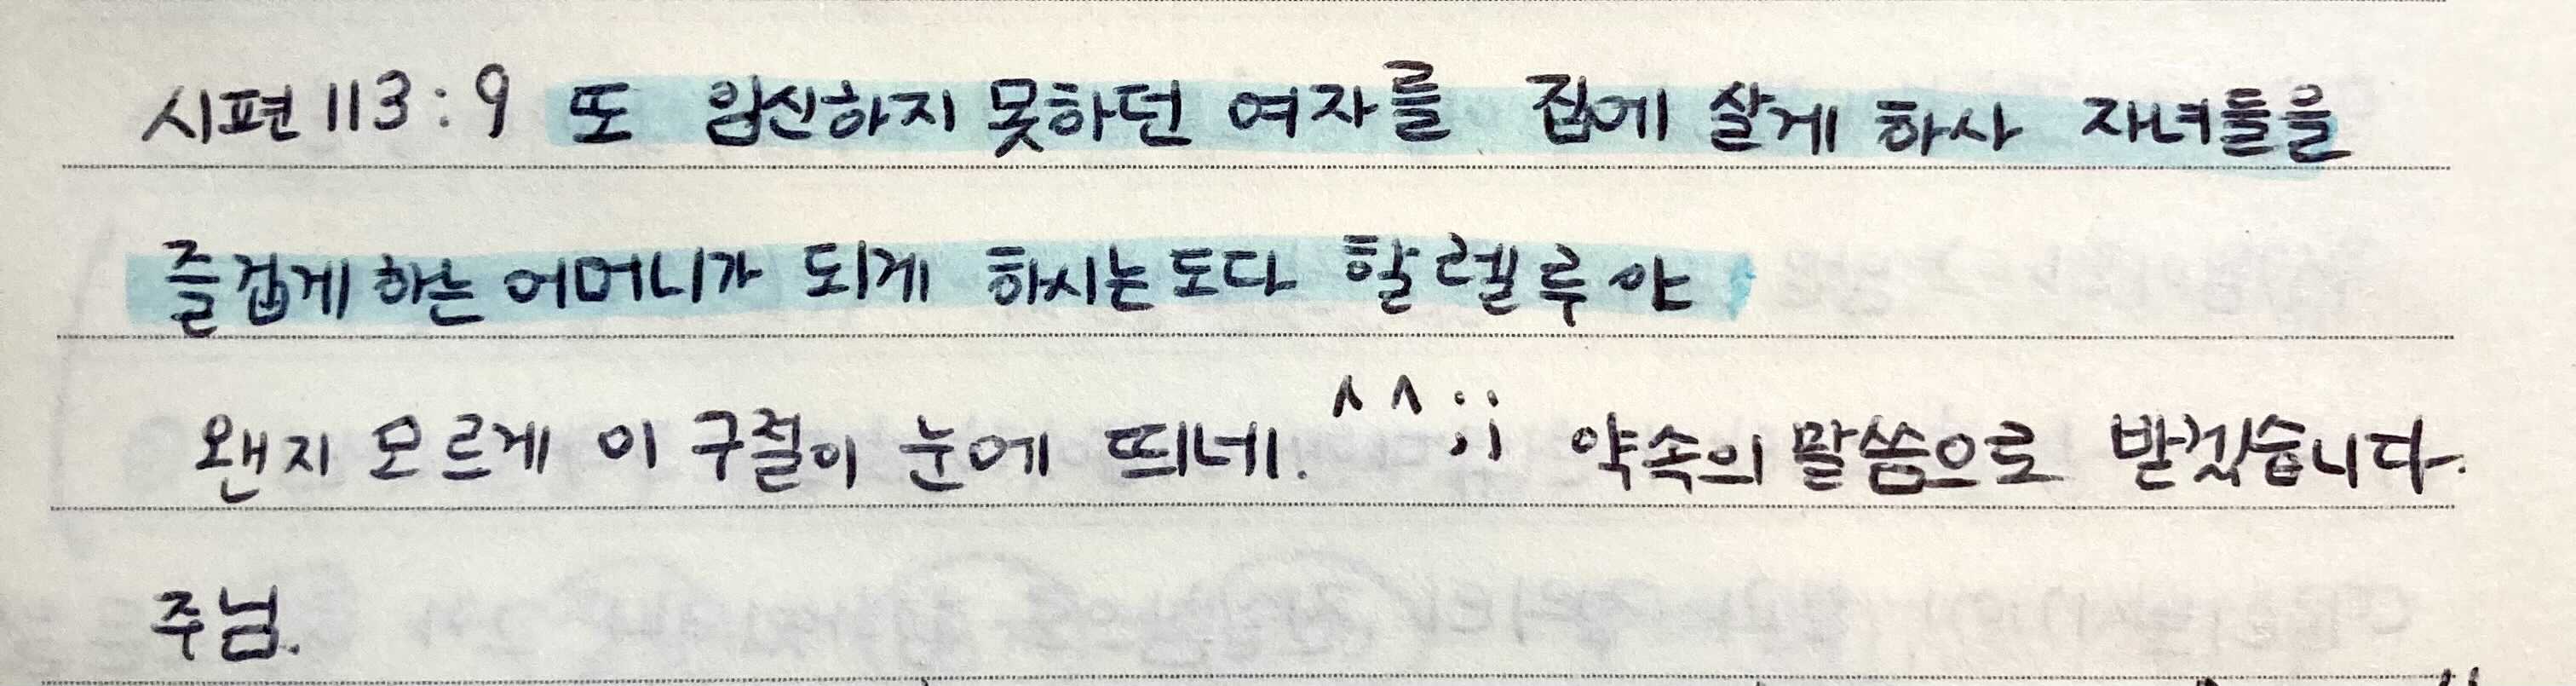 시편 113:9 또 임신하지 못하던 여자를 집에 살게 하사 자녀들을
즐겁게 하는 어머니가 되게 하시는도다 할렐루야
왠지 모르게 이 구절이 눈에 띄네. ^^;; 약속의 말씀으로 받겠습니다.
주님.